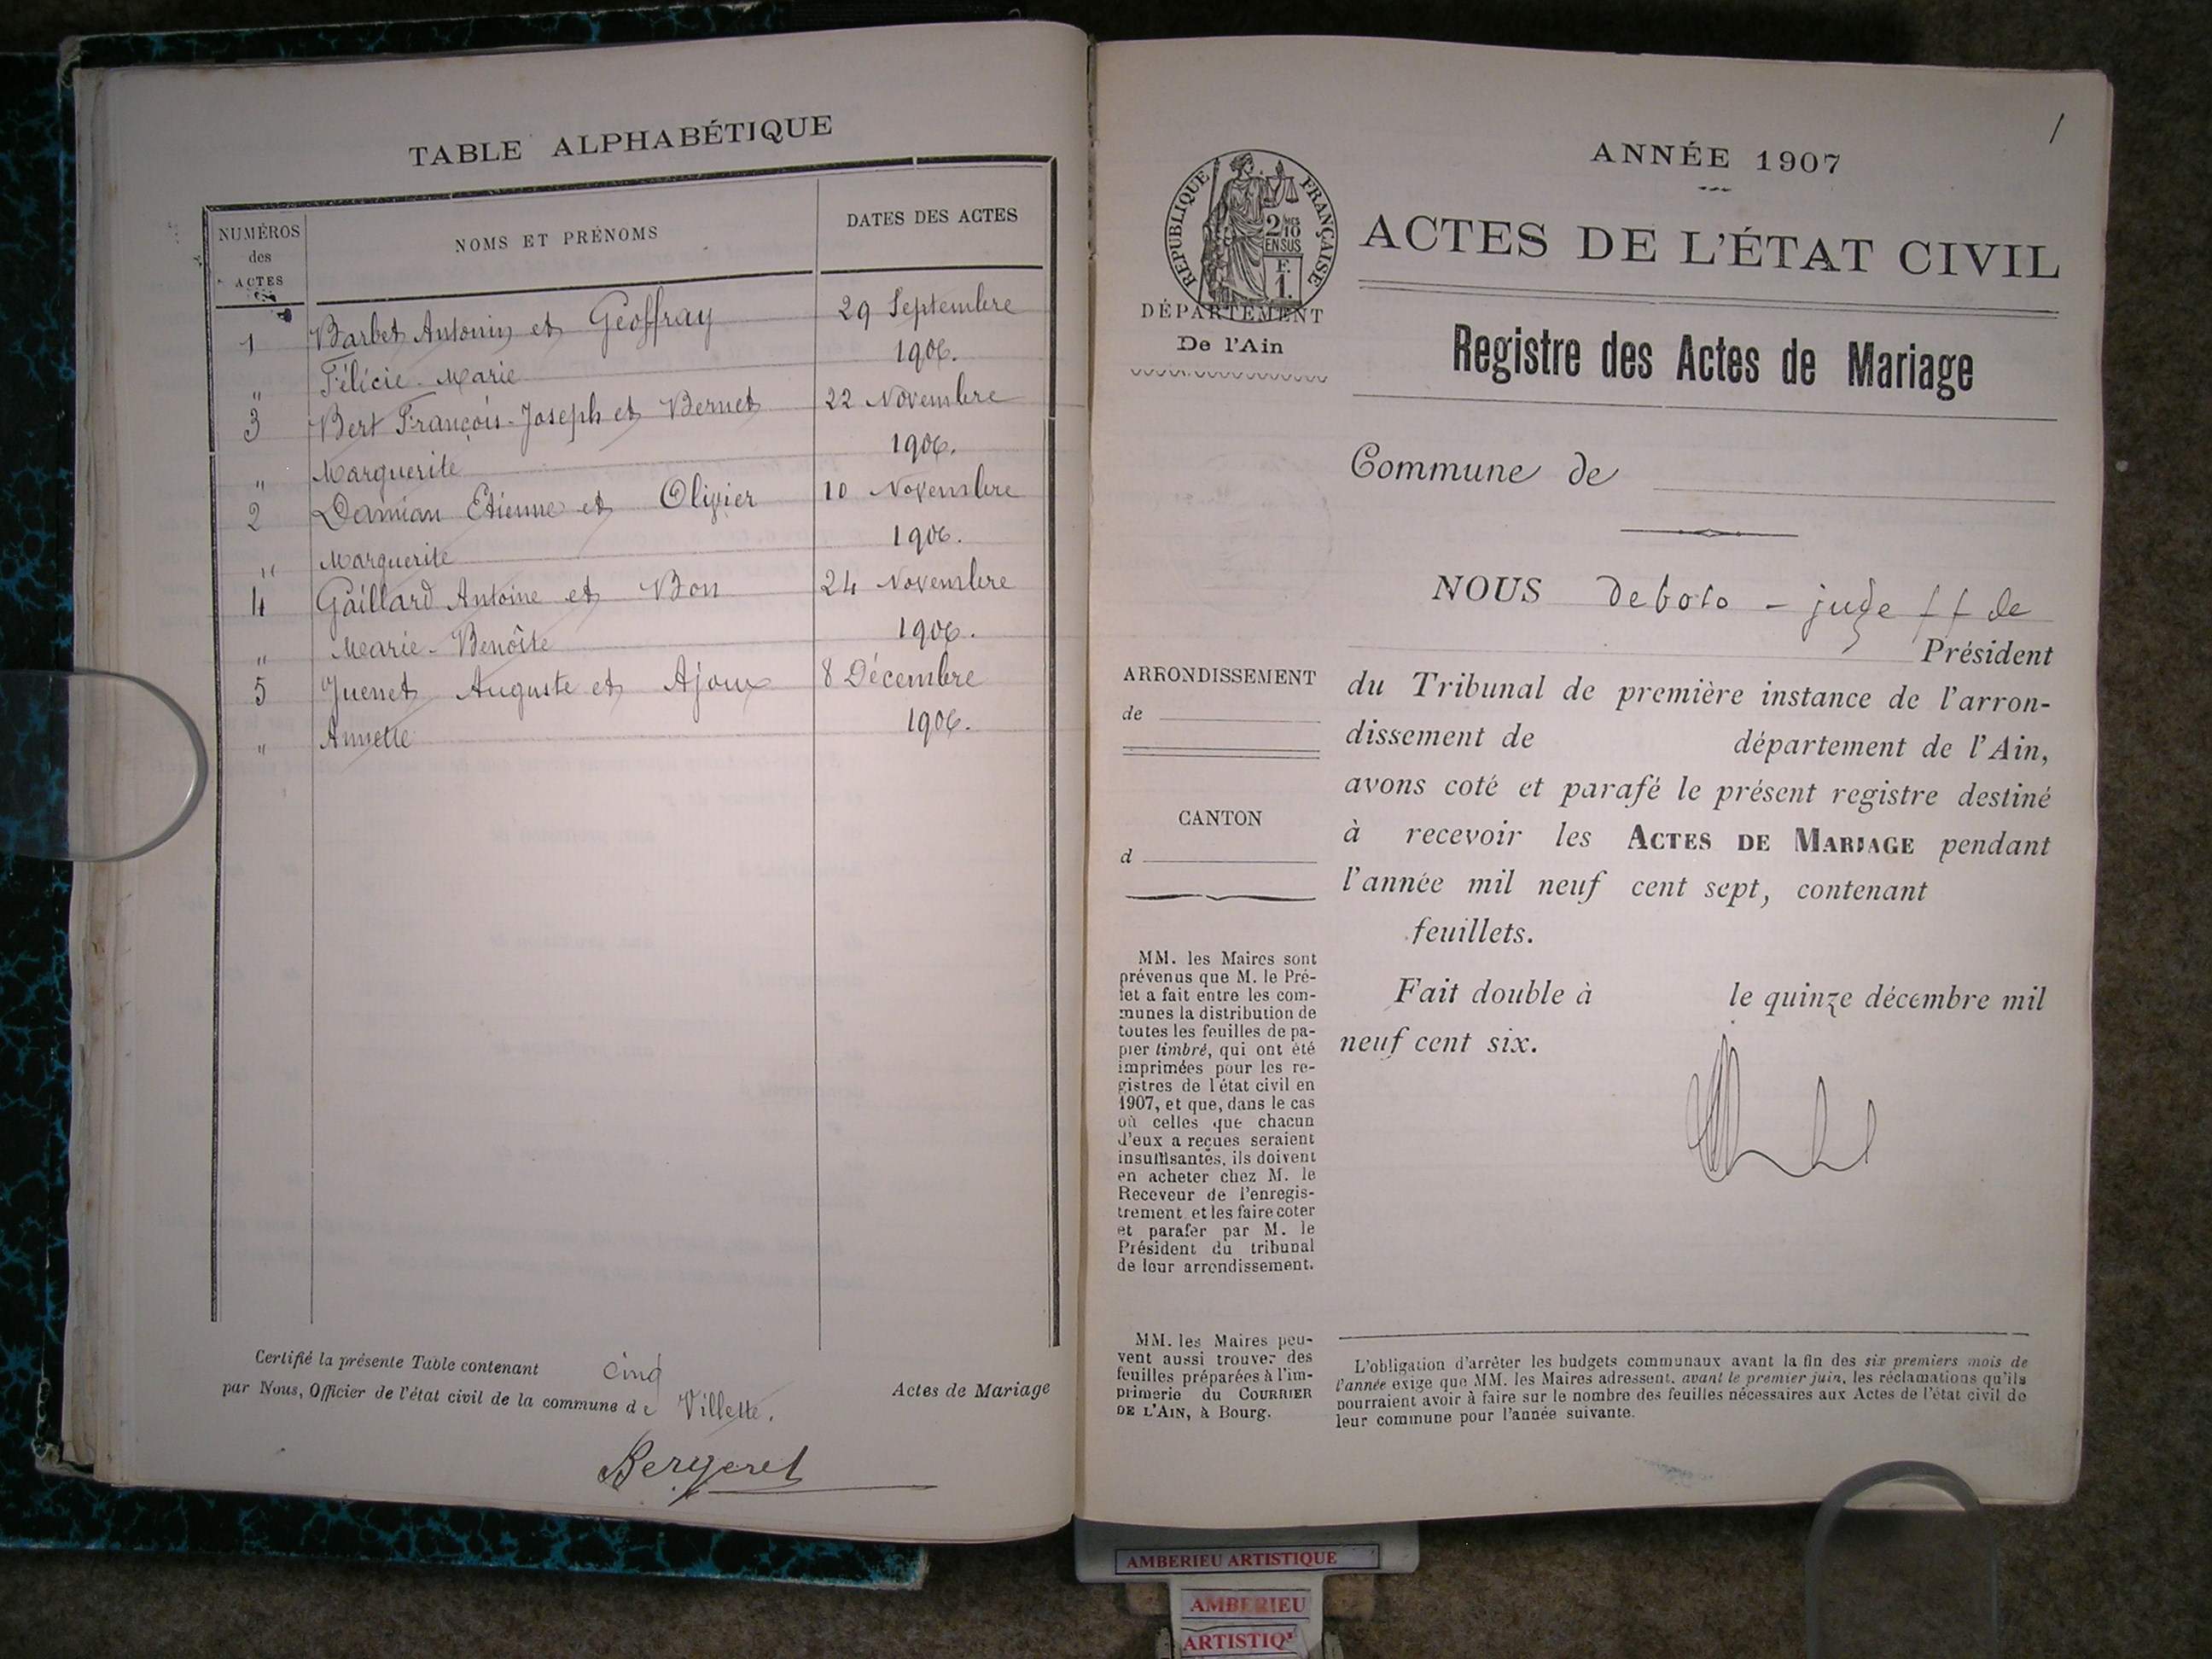 TABLE ALPHABÉTIQUE
NUMÉROS
des
ACTES
NOMS ET PRÉNOMS
DATES DES ACTES
1 Barbet Antonin et Geoffray 29 Septembre
" Félicie-Marie 1906.
3 Bert François-Joseph et Bernet 22 Novembre
" Marguerite 1906.
2 Damian Etienne et Olivier 10 Novembre
" Marguerite 1906.
4 Gaillard Antoine et Bon 24 Novembre
" Marie-Benoîte 1906.
5 Juenet Auguste et Ajoux 8 Décembre
" Annette 1906.
Certifié la présente Table contenant cinq Actes de Mariage
par Nous, Officier de l'état civil de la commune de Villette.
Bergeret
1
ANNÉE 1907
ACTES DE L'ÉTAT CIVIL
RÉPUBLIQUE FRANÇAISE
2/10 MES
EN SUS
F.
1.
DÉPARTEMENT
De l'Ain
Registre des Actes de Mariage
Commune de
NOUS juge ff de
Président
du Tribunal de première instance de l'arron-
dissement de département de l'Ain,
avons coté et parafé le présent registre destiné
à recevoir les ACTES DE MARIAGE pendant
l'année mil neuf cent sept, contenant
feuillets.
Fait double à le quinze décembre mil
neuf cent six.
ARRONDISSEMENT
de
CANTON
d
MM. les Maires sont
prévenus que M. le Pré-
fet a fait entre les com-
munes la distribution de
toutes les feuilles de pa-
pier timbré, qui ont été
imprimées pour les re-
gistres de l'état civil en
1907, et que, dans le cas
où celles que chacun
d'eux a reçues seraient
insuffisantes, ils doivent
en acheter chez M. le
Receveur de l'enregis-
trement et les faire coter
et parafer par M. le
Président du tribunal
de leur arrondissement.
MM. les Maires peu-
vent aussi trouver des
feuilles préparées à l'im-
primerie du COURRIER
DE L'AIN, à Bourg.
L'obligation d'arrêter les budgets communaux avant la fin des six premiers mois de
l'année exige que MM. les Maires adressent, avant le premier juin, les réclamations qu'ils
pourraient avoir à faire sur le nombre des feuilles nécessaires aux Actes de l'état civil de
leur commune pour l'année suivante.
AMBERIEU ARTISTIQUE
AMBERIEU
ARTISTIQ